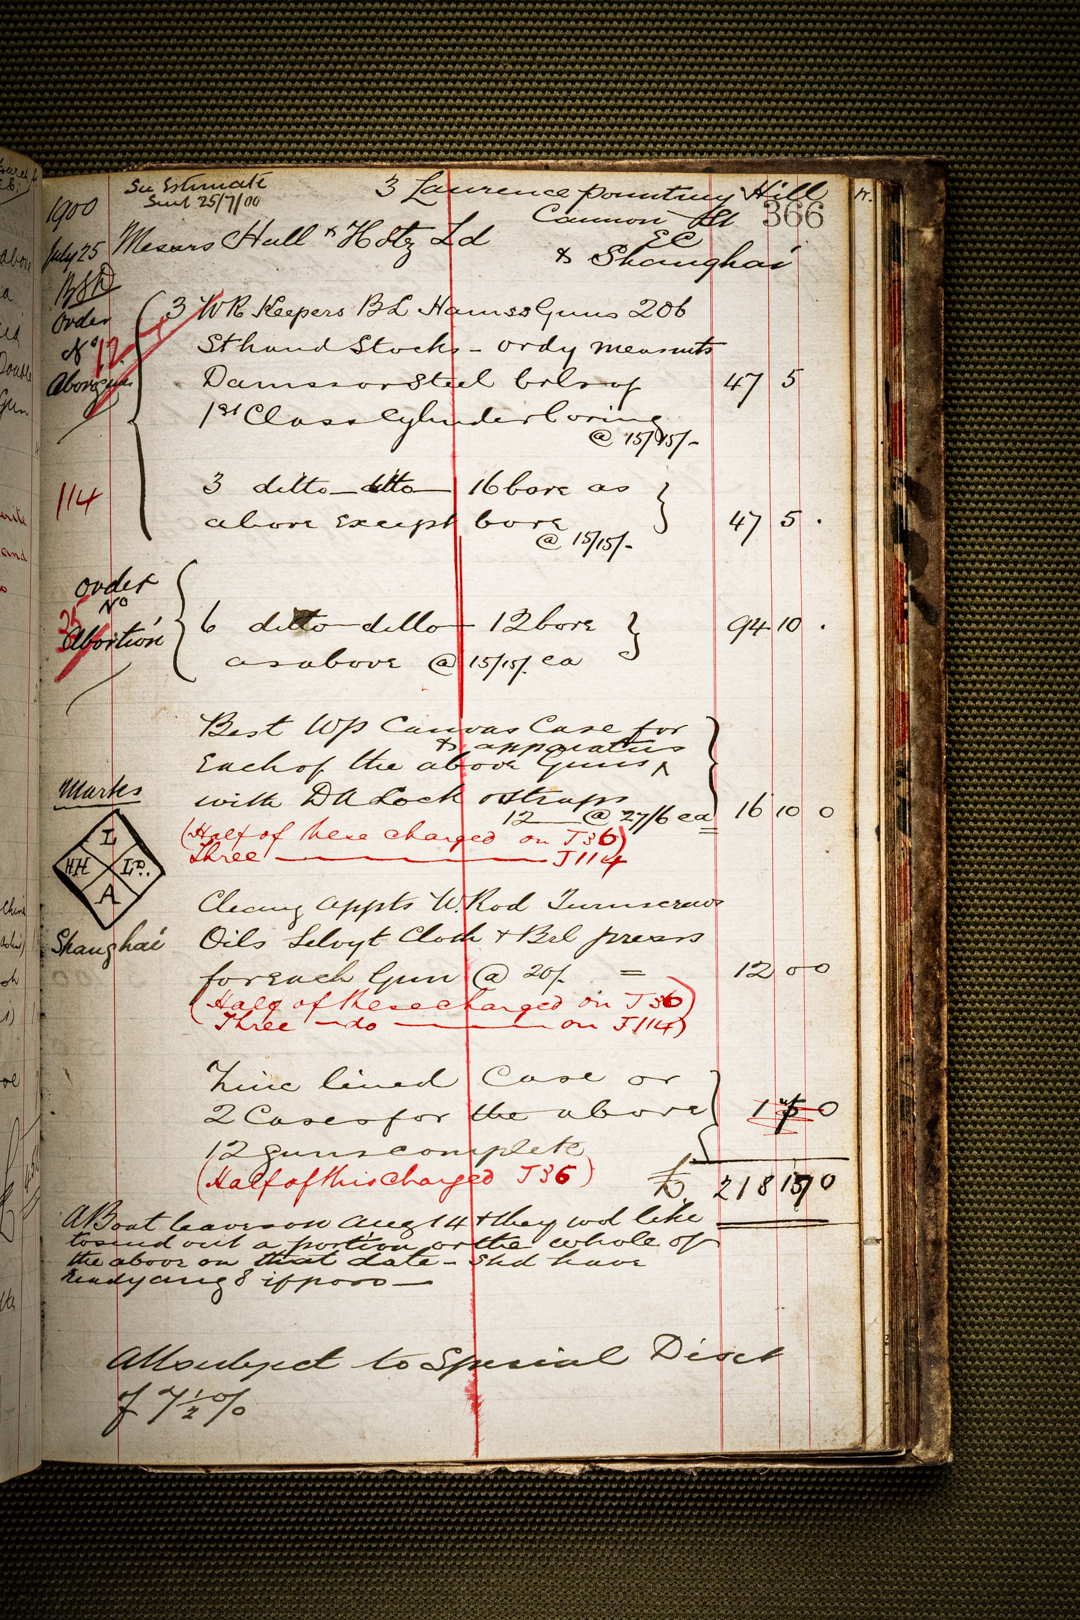 1900
See Estimate
Sent 25/7/00
3 Laurence Pountney Hill
Cannon St
366
EC
& Shanghai
July 25
Messrs Hall & Holtz Ld
Order
No 12
3 WR Keepers BL Hamss Guns 20b
St hand Stocks - ordy measmts
Damss or Steel brls of
47 5
1st Class Cylinder boring
@ 15/15/-
114
3 ditto - ditto 16 bore as
above Except bore
@ 15/15/-
47 5 .
Order
No
35
Abortion
6 ditto ditto 12 bore
94 10 .
as above @ 15/15/. ea
Best WP Canvas Case for
& apparatus
Each of the above Guns
with DA Lock & Straps
12 @ 27/6 ea
16 10 0
(Half of these charged on J36)
Three J114
Marks
L
HH
LD.
A
Shanghai
Cleang Appts W.Rod Turnscrews
Oils Selvyt Cloth & Brl
for Each Gun @ 20/. =
12 00
(Half of these charged on J36
Three - do on J114)
Zinc lined Case or
2 Cases for the above
12 guns complete
(Half of this charged J36)
£ 218
A Boat leaves on Aug 14 & they wd like
to send out a portion or the whole of
the above on that date - Shd have
ready Aug 8 if poss -
All subject to Special Disct
of 7½ %